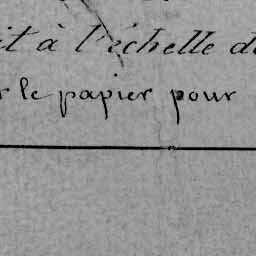 it à l'échelle d
r le papier pour